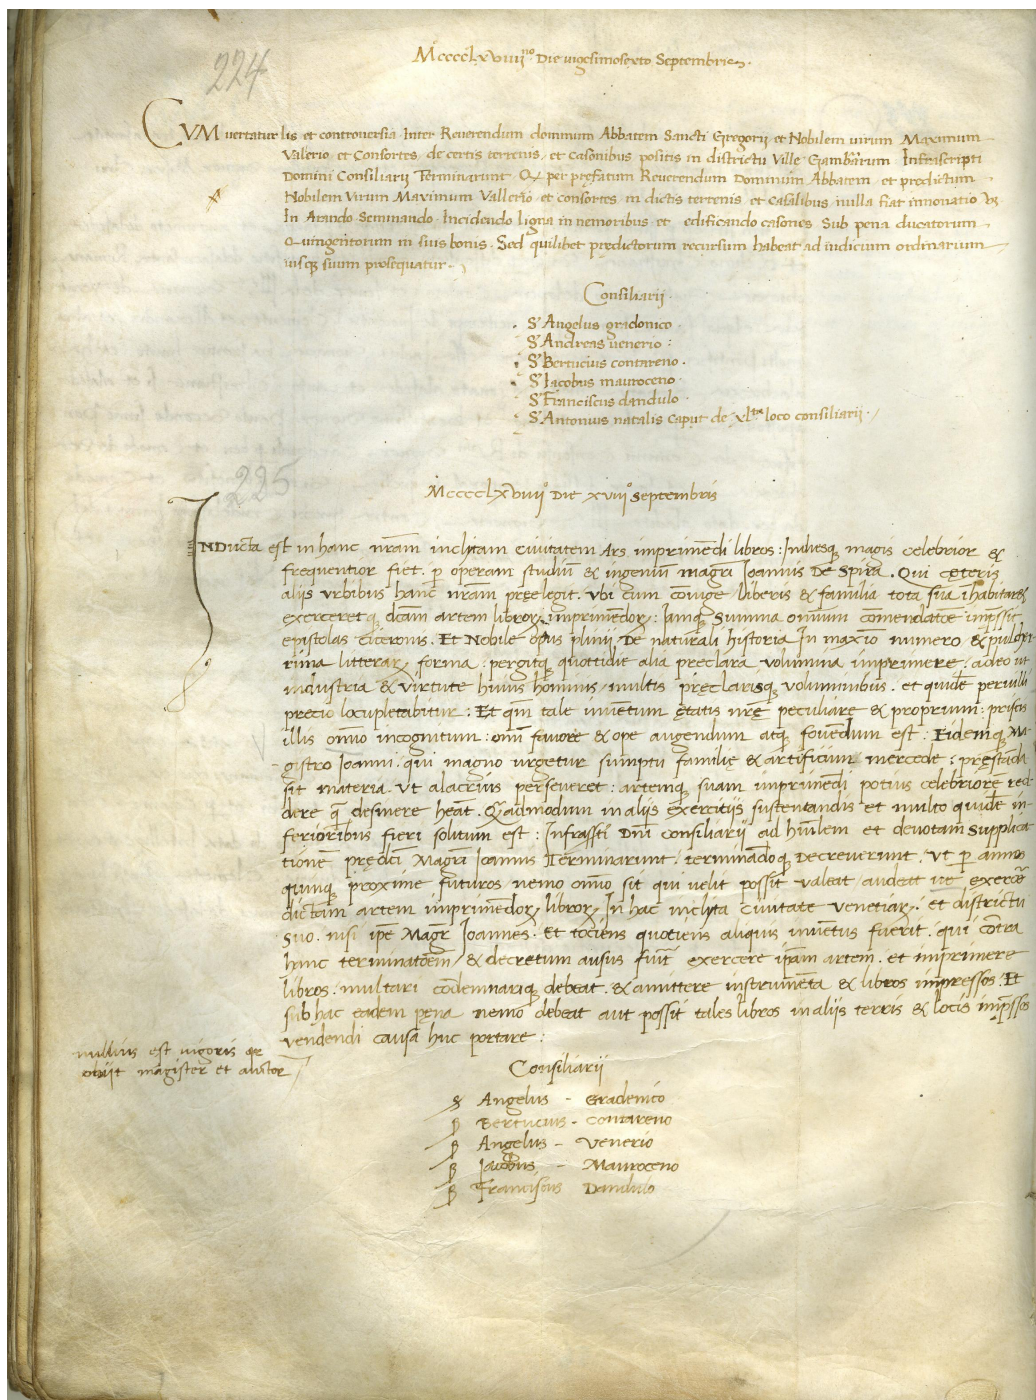 224
MccccLxviiii no Die vigesimosexto Septembris.
CVM vertatur lis et controversia Inter Reverendum dominum Abbatem Sancti Gregorij et Nobilem virum Maximum
Valerio et Consortes, de certis terrenis, et casonibus positis in districtu Ville Gambararum Infrascripti
Domini Consiliarij Terminarunt Q per pręfatum Reverendum Dominum Abbatem et predictum
Nobilem Virum Maximum Vallerio et consortes in dictis terrenis et casalibus nulla fiat innonatio
In Arando Seminando Incidendo ligna in nemoribus et edificando casones Sub pena ducatorum
Quingentorum in suis bonis. Sed quilibet predictorum recursum habeat ad iudicium ordinarium
iusq suum prosequatur.
Consiliarij.
S Angelus gradonico
S Andreas venerio :
S Bertucius contareno.
S Iacobus mauroceno
S Franciscus dandulo.
S Antonius natalis caput de xl ta loco consiliarij.
225
MccccLxviiij o Die xviij o Septembris
INDucta est in hanc nrãm inclitam civitatem Ars imprimẽdi libros: Indiesq magis celebrior &
frequentior fiet. p operam studiũ & ingeniũ magrĩ Ioannis De Spira. Qui cęteris
aliis vrbibus hanc nrãm pręelegit. vbi cum cõiuge liberis & familia tota sua ĩhabitaret
exerceretq dcãm artem libror imprimẽdor: Iamq summa omniũ cõmendatõe impssit
epistolas Ciceronis. Et Nobile opus plinij De naturali historia In maxĩo numero, & pulcher
rima litterar forma. pergitq quottidie alia preclara volumina imprimere. adeo ut
industria & virtute huius hominis, multis pręclarisq voluminibus. et quidẽ pervili
precio locupletabitur: Et qm̃ tale inventum ętatis nrę peculiare & proprium: priscis
illis omñio incognitum: omni favore & ope augendum atq fovẽdum est: Eidemq Ma
gistro Ioanni. qui magno urgetur sumptu familię & artificium mercede: pręstãda
sit materia. Vt alacrius perseveret: artemq suam imprimẽdi potius celebriorẽ red
dere q̃ desinere heãt. Quẽadmodum in aliis exercitiis sustentandis et multo quidẽ in-
ferioribus fieri solitum est: Infrassti Dnĩ Consiliarij ad hũilem et devotam Supplica
tionẽ pręditi Magrĩ Ioannis Terminarunt. terminãdoq Decreverunt. Vt p annos
quinq proxime futuros, nemo omñio sit qui velit possit valeat, audeat ve exercẽ
dictam artem imprimẽdor libror In hac inclyta civitate venetiar: et districtu
suo. nisi ipe Magr Ioannes. Et tociens quotiens aliquis inventus fuerit. qui cõtra
hanc terminatõem, & decretum ausus fuit exercere ipãm artem. et imprimere
libros. multari cõdemnariq debeat. & amittere instrumẽta & libros impressos. Et
sub hac eadem pena nemo debeat aut possit tales libros in aliis terris & locis impssos
vendendi causa huc portare:
nullius est vigoris qr
obijt magister et auctor
Consiliarij
Angelus - Gradenico
Bertucius - Contareno
Angelus - Venerio
Iacobus - Mauroceno
Franciscus Dandulo